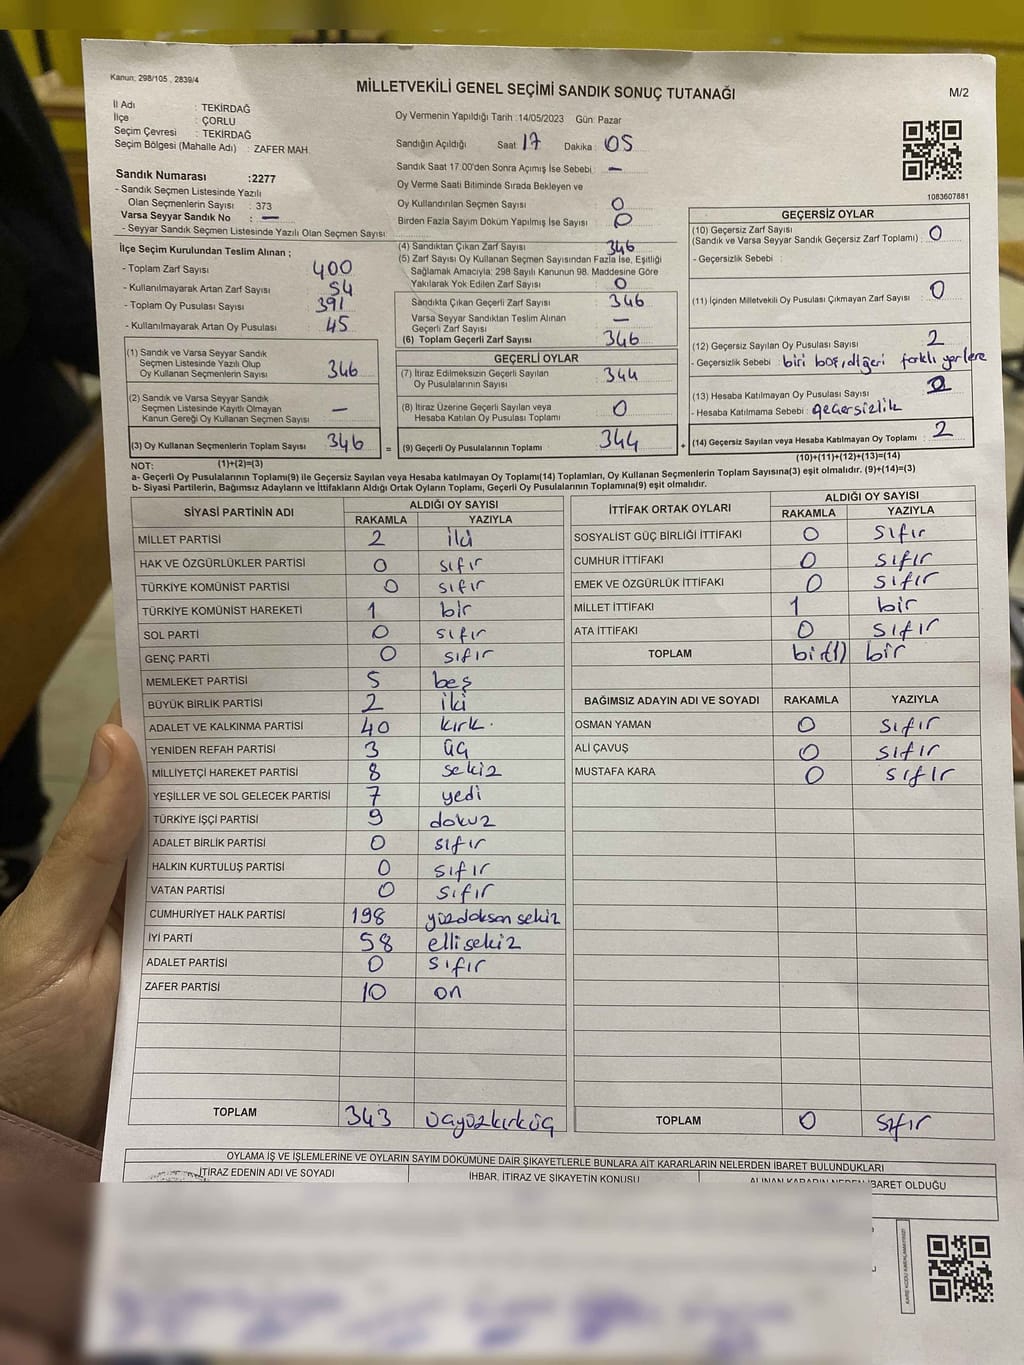 Kanun: 298/105 , 2839/4
MİLLETVEKİLİ GENEL SEÇİMİ SANDIK SONUÇ TUTANAĞI
M/2
İl Adı : TEKİRDAĞ
İlçe : ÇORLU
Seçim Çevresi : TEKİRDAĞ
Seçim Bölgesi (Mahalle Adı) : ZAFER MAH.
Sandık Numarası :2277
- Sandık Seçmen Listesinde Yazılı
Olan Seçmenlerin Sayısı : 373
Varsa Seyyar Sandık No : —
- Seyyar Sandık Seçmen Listesinde Yazılı Olan Seçmen Sayısı:
İlçe Seçim Kurulundan Teslim Alınan ;
- Toplam Zarf Sayısı 400
- Kullanılmayarak Artan Zarf Sayısı : 54
- Toplam Oy Pusulası Sayısı : 391
- Kullanılmayarak Artan Oy Pusulası : 45
(1) Sandık ve Varsa Seyyar Sandık
Seçmen Listesinde Yazılı Olup
Oy Kullanan Seçmenlerin Sayısı : 346
(2) Sandık ve Varsa Seyyar Sandık
Seçmen Listesinde Kayıtlı Olmayan
Kanun Gereği Oy Kullanan Seçmen Sayısı : —
(3) Oy Kullanan Seçmenlerin Toplam Sayısı : 346 =
Oy Vermenin Yapıldığı Tarih :14/05/2023 Gün: Pazar
Sandığın Açıldığı Saat : 17 Dakika : 05
Sandık Saat 17.00'den Sonra Açımış İse Sebebi : —
Oy Verme Saati Bitiminde Sırada Bekleyen ve
Oy Kullandırılan Seçmen Sayısı : 0
Birden Fazla Sayım Döküm Yapılmış İse Sayısı : 0
(4) Sandıktan Çıkan Zarf Sayısı : 346
(5) Zarf Sayısı Oy Kullanan Seçmen Sayısından Fazla İse, Eşitliği
Sağlamak Amacıyla; 298 Sayılı Kanunun 98. Maddesine Göre
Yakılarak Yok Edilen Zarf Sayısı : 0
Sandıkta Çıkan Geçerli Zarf Sayısı : 346
Varsa Seyyar Sandıktan Teslim Alınan
Geçerli Zarf Sayısı : —
(6) Toplam Geçerli Zarf Sayısı : 346
GEÇERLİ OYLAR
(7) İtiraz Edilmeksizin Geçerli Sayılan
Oy Pusulalarının Sayısı : 344
(8) İtiraz Üzerine Geçerli Sayılan veya
Hesaba Katılan Oy Pusulası Toplamı : 0
(9) Geçerli Oy Pusulalarının Toplamı : 344 +
1083607881
GEÇERSİZ OYLAR
(10) Geçersiz Zarf Sayısı
(Sandık ve Varsa Seyyar Sandık Geçersiz Zarf Toplamı) : 0
- Geçersizlik Sebebi :
(11) İçinden Milletvekili Oy Pusulası Çıkmayan Zarf Sayısı : 0
(12) Geçersiz Sayılan Oy Pusulası Sayısı : 2
- Geçersizlik Sebebi : biri boş,diğeri farklı yerlere
(13) Hesaba Katılmayan Oy Pusulası Sayısı :
- Hesaba Katılmama Sebebi : geçersizlik
(14) Geçersiz Sayılan veya Hesaba Katılmayan Oy Toplamı : 2
NOT: (1)+(2)=(3) (10)+(11)+(12)+(13)=(14)
a- Geçerli Oy Pusulalarının Toplamı(9) ile Geçersiz Sayılan veya Hesaba katılmayan Oy Toplamı(14) Toplamları, Oy Kullanan Seçmenlerin Toplam Sayısına(3) eşit olmalıdır. (9)+(14)=(3)
b- Siyasi Partilerin, Bağımsız Adayların ve İttifakların Aldığı Ortak Oyların Toplamı, Geçerli Oy Pusulalarının Toplamına(9) eşit olmalıdır.
SİYASİ PARTİNİN ADI ALDIĞI OY SAYISI
RAKAMLA YAZIYLA
MİLLET PARTİSİ 2 iki
HAK VE ÖZGÜRLÜKLER PARTİSİ 0 sıfır
TÜRKİYE KOMÜNİST PARTİSİ 0 sıfır
TÜRKİYE KOMÜNİST HAREKETİ 1 bir
SOL PARTİ 0 sıfır
GENÇ PARTİ 0 sıfır
MEMLEKET PARTİSİ 5 beş
BÜYÜK BİRLİK PARTİSİ 2 iki
ADALET VE KALKINMA PARTİSİ 40 kırk.
YENİDEN REFAH PARTİSİ 3 üç
MİLLİYETÇİ HAREKET PARTİSİ 8 sekiz
YEŞİLLER VE SOL GELECEK PARTİSİ 7 yedi
TÜRKİYE İŞÇİ PARTİSİ 9 dokuz
ADALET BİRLİK PARTİSİ 0 sıfır
HALKIN KURTULUŞ PARTİSİ 0 sıfır
VATAN PARTİSİ 0 sıfır
CUMHURİYET HALK PARTİSİ 198 yüzdoksan sekiz
İYİ PARTİ 58 elli sekiz
ADALET PARTİSİ 0 sıfır
ZAFER PARTİSİ 10 on
TOPLAM 343 üçyüzkırküç
İTTİFAK ORTAK OYLARI ALDIĞI OY SAYISI
RAKAMLA YAZIYLA
SOSYALİST GÜÇ BİRLİĞİ İTTİFAKI 0 sıfır
CUMHUR İTTİFAKI 0 sıfır
EMEK VE ÖZGÜRLÜK İTTİFAKI 0 sıfır
MİLLET İTTİFAKI 1 bir
ATA İTTİFAKI 0 sıfır
TOPLAM bir(1) bir
BAĞIMSIZ ADAYIN ADI VE SOYADI RAKAMLA YAZIYLA
OSMAN YAMAN 0 sıfır
ALİ ÇAVUŞ 0 sıfır
MUSTAFA KARA 0 sıfır
TOPLAM 0 sıfır
OYLAMA İŞ VE İŞLEMLERİNE VE OYLARIN SAYIM DÖKÜMÜNE DAİR ŞİKAYETLERLE BUNLARA AİT KARARLARIN NELERDEN İBARET BULUNDUKLARI
İTİRAZ EDENİN ADI VE SOYADI İHBAR, İTİRAZ VE ŞİKAYETİN KONUSU ALINAN KARARIN NEDEN İBARET OLDUĞU